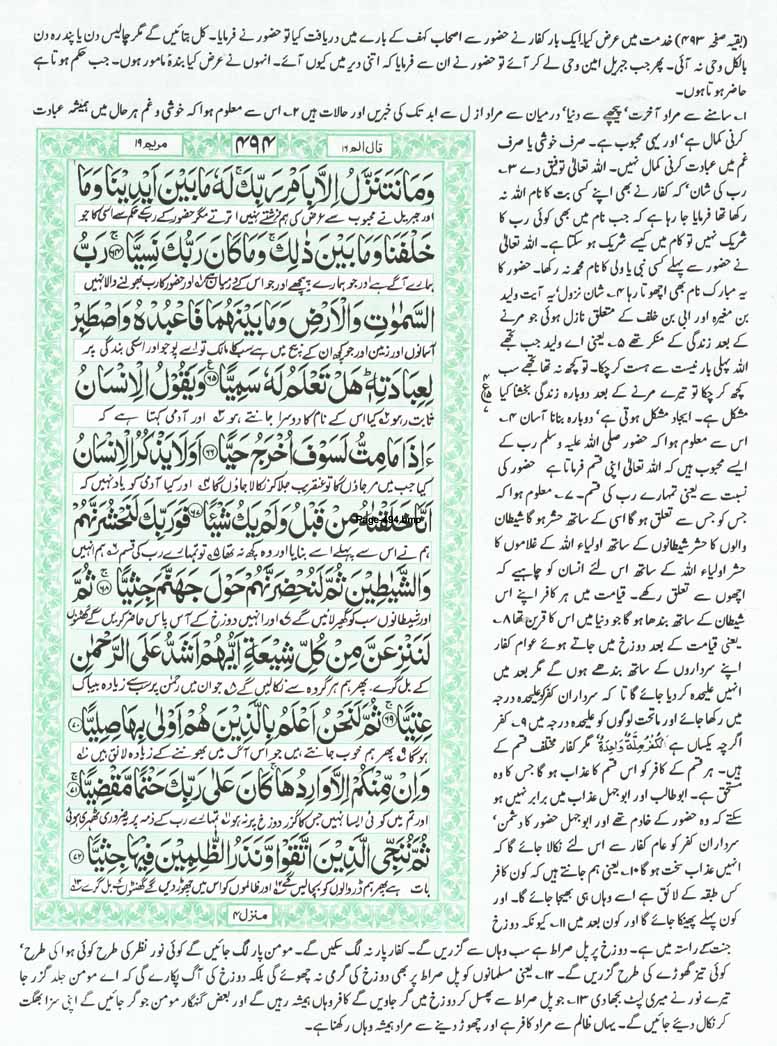 (بقیہ صفحہ ۴۹۳) خدمت میں عرض کیا۔ ایک بار کفار نے حضور سے اصحاب کہف کے بارے میں دریافت کیا تو حضور نے فرمایا۔ کل بتائیں گے مگر چالیس دن یا پندرہ دن
بالکل وحی نہ آئی۔ پھر جب جبریل امین وحی لے کر آئے تو حضور نے ان سے فرمایا کہ اتنی دیر میں کیوں آئے۔ انہوں نے عرض کیا بندہ مامور ہوں۔ جب حکم ہوتا ہے
حاضر ہوتا ہوں۔
۱۔ سامنے سے مراد آخرت، پیچھے سے دنیا، درمیان سے مراد ازل سے ابد تک کی خبریں اور حالات ہیں ۲۔ اس سے معلوم ہوا کہ خوشی و غم ہر حال میں ہمیشہ عبادت
کرنی کمال ہے، اور یہی محبوب ہے۔ صرف خوشی یا صرف
غم میں عبادت کرنی کمال نہیں۔ اللہ تعالیٰ توفیق دے ۳۔
رب کی شان، کہ کفار نے بھی اپنے کسی بت کا نام اللہ نہ
رکھا تھا فرمایا جا رہا ہے کہ جب نام میں بھی کوئی رب کا
شریک نہیں تو کام میں کیسے شریک ہو سکتا ہے۔ اللہ تعالیٰ
نے حضور سے پہلے کسی نبی یا ولی کا نام محمد نہ رکھا۔ حضور کا
یہ مبارک نام بھی اچھوتا رہا ۴۔ شان نزول، یہ آیت ولید
بن مغیرہ اور ابی بن خلف کے متعلق نازل ہوئی جو مرنے
کے بعد زندگی کے منکر تھے ۵۔ یعنی اے ولید جب تجھے
اللہ پہلی بار نیست سے ہست کر چکا۔ تو کچھ نہ تھا تجھے سب
کچھ کر چکا تو تیرے مرنے کے بعد دوبارہ زندگی بخشنا کیا
مشکل ہے۔ ایجاد مشکل ہوتی ہے، دوبارہ بنانا آسان ۶۔
اس سے معلوم ہوا کہ حضور صلی اللہ علیہ وسلم رب کے
ایسے محبوب ہیں کہ اللہ تعالیٰ اپنی قسم فرماتا ہے حضور کی
نسبت سے یعنی تمہارے رب کی قسم۔ ۷۔ معلوم ہوا کہ
جس کو جس سے تعلق ہو گا اسی کے ساتھ حشر ہو گا شیطان
والوں کا حشر شیطانوں کے ساتھ اولیاء اللہ کے غلاموں کا
حشر اولیاء اللہ کے ساتھ اس لئے انسان کو چاہیے کہ
اچھوں سے تعلق رکھے۔ قیامت میں ہر کافر اپنے اس
شیطان کے ساتھ بندھا ہو گا جو دنیا میں اس کا قرین تھا ۸۔
یعنی قیامت کے بعد دوزخ میں جاتے ہوئے عوام کفار
اپنے سرداروں کے ساتھ بندھے ہوں گے مگر بعد میں
انہیں علیحدہ کر دیا جائے گا تا کہ سرداران کفر کو علیحدہ درجہ
میں رکھا جائے اور ماتحت لوگوں کو علیحدہ درجہ میں ۹۔ کفر
اگرچہ یکساں ہے اَلْکُفْرُ مِلَّةٌ وَّاحِدَةٌ، مگر کفار مختلف قسم کے
ہیں۔ ہر قسم کے کافر کو اس قسم کا عذاب ہو گا جس کا وہ
مستحق ہے۔ ابوطالب اور ابو جہل عذاب میں برابر نہیں ہو
سکتے کہ وہ حضور کے خادم تھے اور ابو جہل حضور کا دشمن،
سرداران کفر کو عام کفار سے اس لئے نکالا جائے گا کہ
انہیں عذاب سخت ہو گا ۱۰۔ یعنی ہم جانتے ہیں کہ کون کافر
کس طبقہ کے لائق ہے اسے وہاں ہی بھیجا جائے گا۔ اور
کون پہلے پھینکا جائے گا اور کون بعد میں ۱۱۔ کیونکہ دوزخ
قال الم ۱۶
۴۹۴
مریم ۱۹
وَمَا نَتَنَزَّلُ اِلَّا بِاَمْرِ رَبِّكَ ۚ لَهٗ مَا بَیْنَ اَیْدِیْنَا وَمَا
اور جبریل نے محبوب سے عرض کی ہم فرشتے نہیں اترتے مگر حضور کے رب کے حکم سے اسی کا ہے جو
خَلْفَنَا وَمَا بَیْنَ ذٰلِكَ ۚ وَمَا كَانَ رَبُّكَ نَسِیًّا ۚ۶۴ رَبُّ
ہمارے آگے ہے اور جو ہمارے پیچھے اور جو اس کے درمیان ہے ۱ اور حضور کا رب بھولنے والا نہیں
السَّمٰوٰتِ وَالْاَرْضِ وَمَا بَیْنَهُمَا فَاعْبُدْهُ وَاصْطَبِرْ
آسمانوں اور زمین اور جو کچھ ان کے بیچ میں ہے سب کا مالک تو اسے پوجو اور اسکی بندگی پر
لِعِبَادَتِهٖ ؕ هَلْ تَعْلَمُ لَهٗ سَمِیًّا ۠۶۵ وَیَقُوْلُ الْاِنْسَانُ
ثابت رہو ۲ کیا اس کے نام کا دوسرا جانتے ہو ۳ اور آدمی کہتا ہے کہ
ءَاِذَا مَا مِتُّ لَسَوْفَ اُخْرَجُ حَیًّا ۶۶ اَوَلَا یَذْكُرُ الْاِنْسَانُ
کیا جب میں مر جاؤں گا تو عنقریب جلا کر نکالا جاؤں گا ۴ اور کیا آدمی کو یاد نہیں کہ
اَنَّا خَلَقْنٰهُ مِنْ قَبْلُ وَلَمْ یَكُ شَیْـًٔا ۶۷ فَوَرَبِّكَ لَنَحْشُرَنَّهُمْ
Page-494.bmp
ہم نے اس سے پہلے اسے بنایا اور وہ کچھ نہ تھا ۵ تو تمہارے رب کی قسم ۶ ہم انہیں
وَالشَّیٰطِیْنَ ثُمَّ لَنُحْضِرَنَّهُمْ حَوْلَ جَهَنَّمَ جِثِیًّا ۚ۶۸ ثُمَّ
اور شیطانوں سب کو گھیر لائیں گے ۷ اور انہیں دوزخ کے آس پاس حاضر کریں گے گھٹنوں
لَنَنْزِعَنَّ مِنْ كُلِّ شِیْعَةٍ اَیُّهُمْ اَشَدُّ عَلَی الرَّحْمٰنِ
کے بل گرے۔ پھر ہم ہر گروہ سے نکالیں گے ۸ جو ان میں رحمٰن پر سب سے زیادہ بیباک
عِتِیًّا ۚ۶۹ ثُمَّ لَنَحْنُ اَعْلَمُ بِالَّذِیْنَ هُمْ اَوْلٰی بِهَا صِلِیًّا ۷۰
ہو گا ۹ پھر ہم خوب جانتے ہیں جو اس آگ میں بھوننے کے زیادہ لائق ہیں ۱۰
وَاِنْ مِّنْكُمْ اِلَّا وَارِدُهَا ۚ كَانَ عَلٰی رَبِّكَ حَتْمًا مَّقْضِیًّا ۚ۷۱
اور تم میں کوئی ایسا نہیں جس کا گزر دوزخ پر نہ ہو ۱۱ تمہارے رب کے ذمہ پر یہ ضروری ٹھہری ہوئی
ثُمَّ نُنَجِّی الَّذِیْنَ اتَّقَوْا وَّنَذَرُ الظّٰلِمِیْنَ فِیْهَا جِثِیًّا ۷۲
بات ہے پھر ہم ڈر والوں کو بچا لیں گے ۱۲ اور ظالموں کو اس میں چھوڑ دیں گے گھٹنوں کے بل گرے ۱۳
منزل ۴
جنت کے راستہ میں ہے۔ دوزخ پر پل صراط ہے سب وہاں سے گزریں گے۔ کفار پار نہ لگ سکیں گے۔ مومن پار لگ جائیں گے کوئی نور نظر کی طرح کوئی ہوا کی طرح،
کوئی تیز گھوڑے کی طرح گزریں گے۔ ۱۲۔ یعنی مسلمانوں کو پل صراط پر بھی دوزخ کی گرمی نہ چھوئے گی بلکہ دوزخ کی آگ پکارے گی کہ اے مومن جلد گزر جا
تیرے نور نے میری لپٹ بجھا دی ۱۳۔ جو پل صراط سے پھسل کر دوزخ میں گر جاویں گے کافر وہاں ہمیشہ رہیں گے اور بعض گنہگار مومن جو گر جائیں گے اپنی سزا بھگت
کر نکال دیئے جائیں گے۔ یہاں ظالم سے مراد کافر ہے اور چھوڑ دینے سے مراد ہمیشہ وہاں رکھنا ہے۔